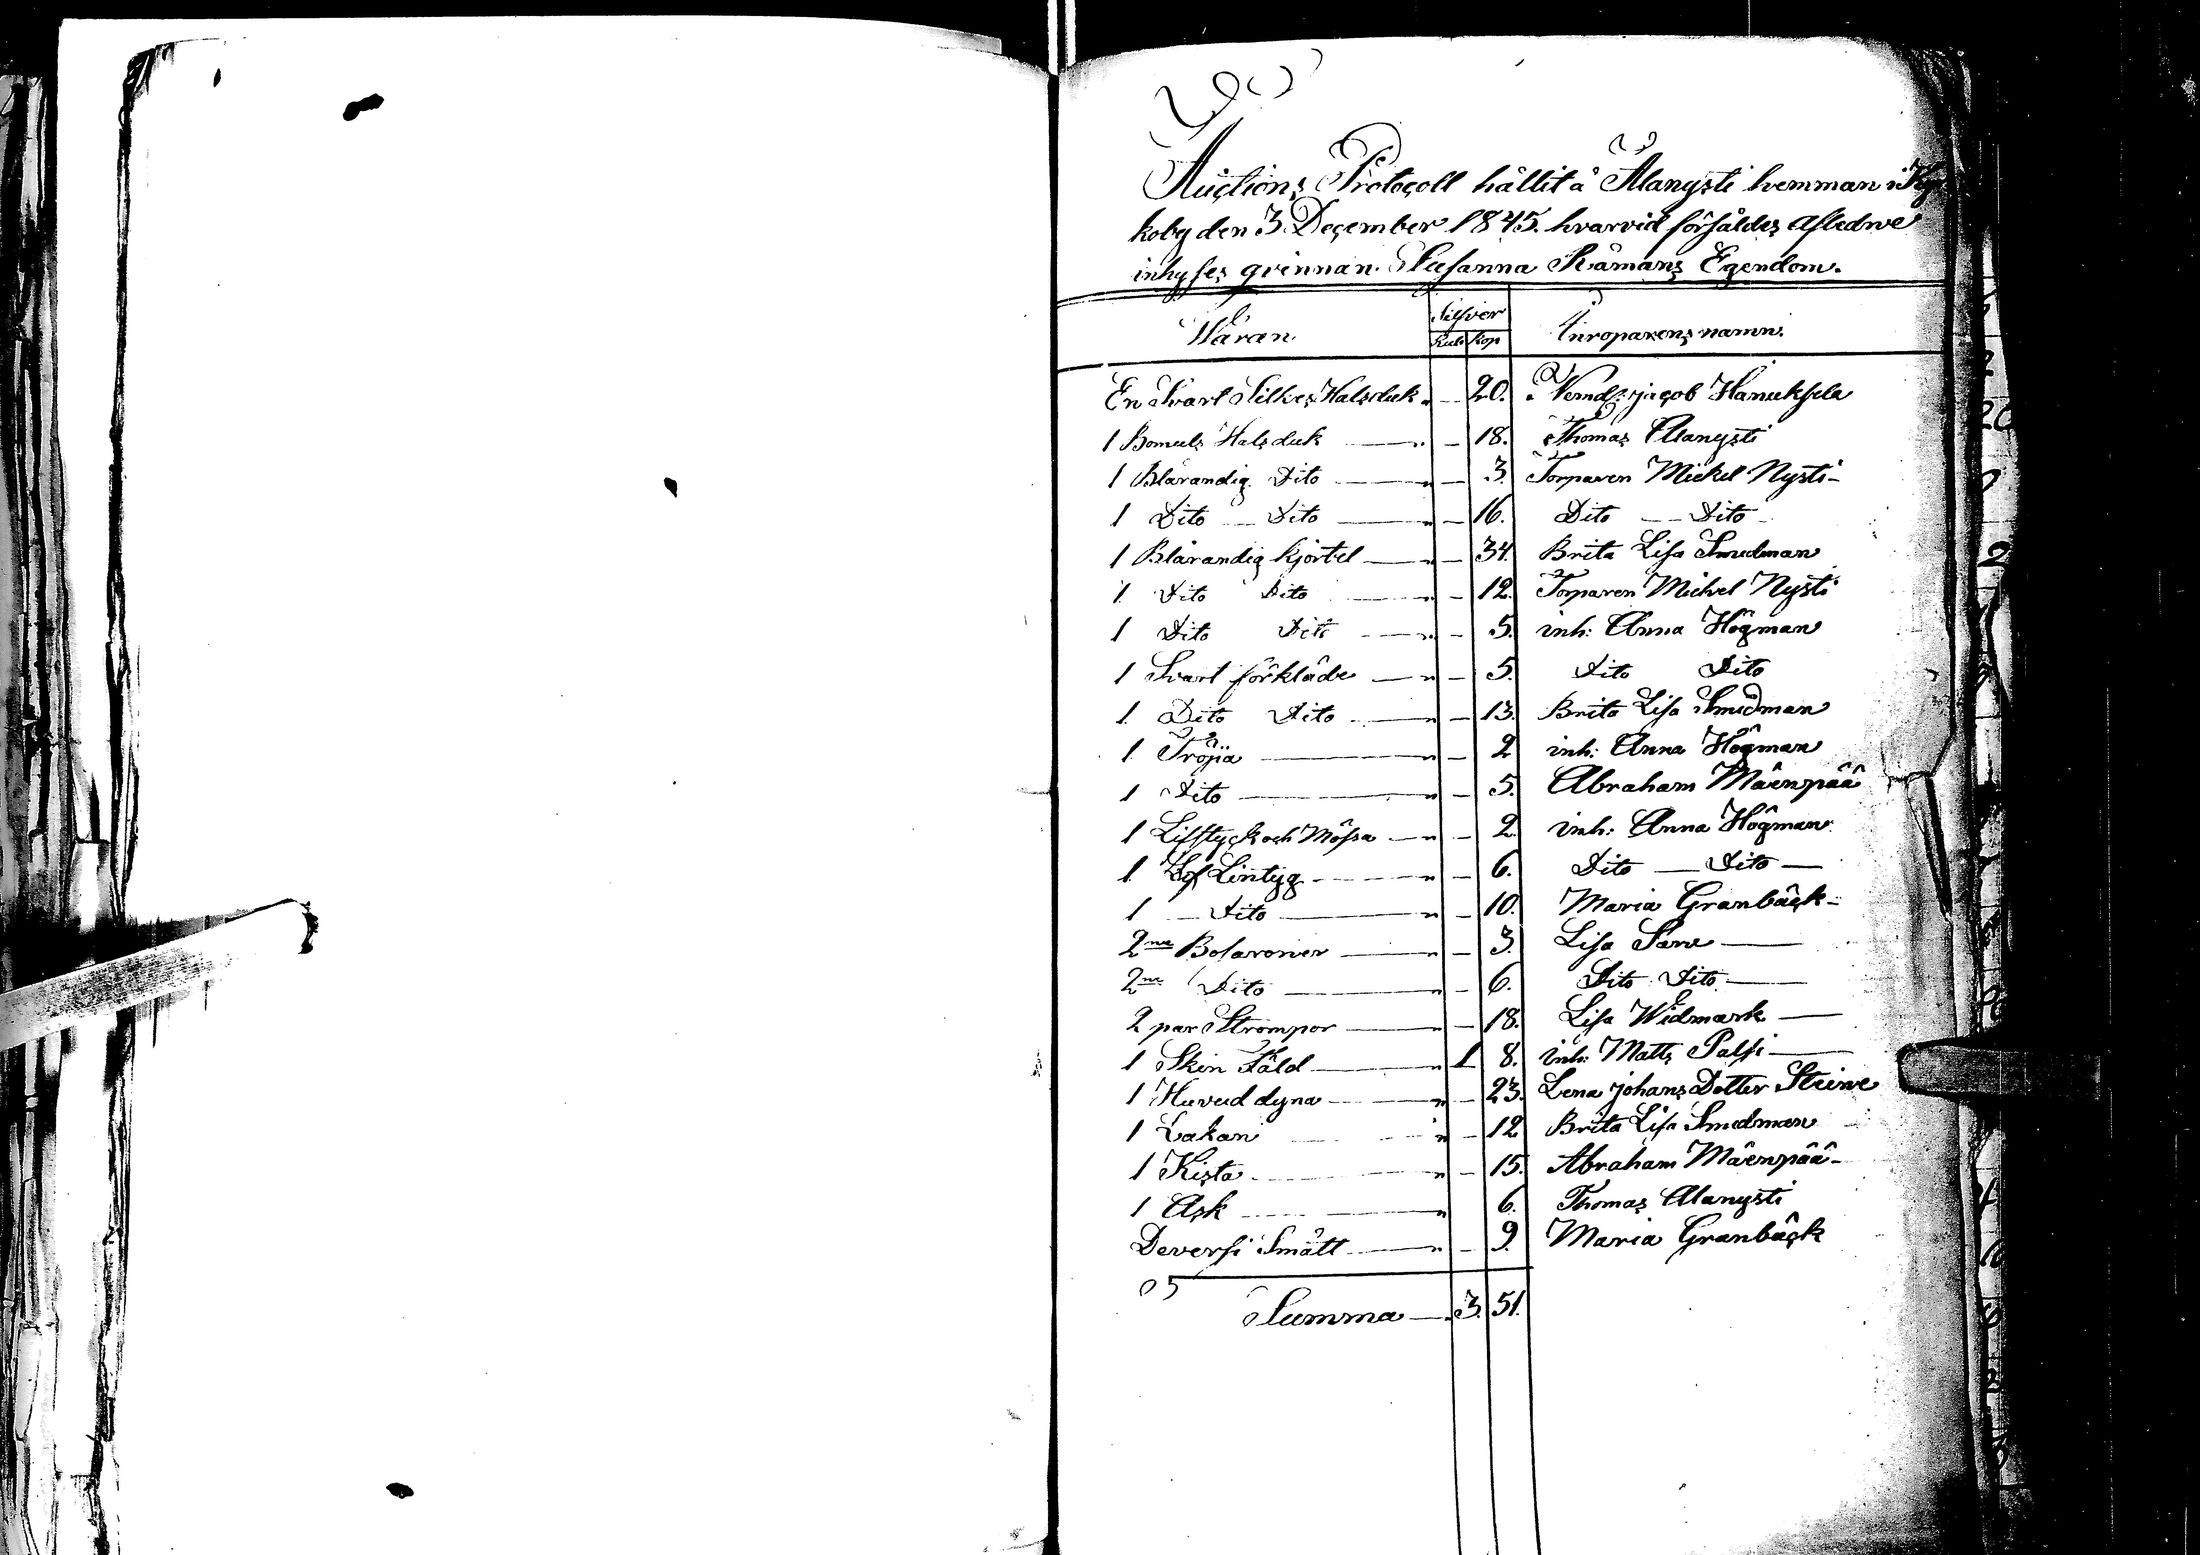 Auctions Protocoll hållit å Alangsti hemman i Ky
koby den 3 December 1845. hvarvid försåldes afledne
inhyses qvinnan Susanna Råmans Egendom.
Waran. Silfver Inroparens namn.
Rub Kop
En Svart Silkes Halsduk " — 20. Nemd: jacob Hanuksela
1 Bomuls Halsduk " — 18. Thomas Alangsti
1 Blårandig Dito " — 3. Torparen Mickel Nysti
1 Dito Dito " — 16. Dito Dito
1 Blårandig kjortel " — 34. Brita Lisa Smedman
1 Dito Dito " — 12. Torparen Michel Nysti
1 Dito Dito " — 5. inh: Anna Högman
1 Svart förkläde " — 5. Dito Dito
1 Dito Dito " — 13. Brita Lisa Smedman
1 Tröja " — 2 inh: Anna Högman
1 Dito " — 5. Abraham Mäenpää
1 Lifstyck och Mössa " — 2 inh: Anna Högman
1 Lintyg " — 6. Dito Dito
1 Dito " — 10. Maria Granbäck
2ne " — 3. Lisa
2ne Dito " — 6. Dito Dito
2 par Strompor — 18. Lisa Widmark
1 Skin Fäld " 1 8. inh: Matts Palsi
1 Huvud dyna " — 23. Lena johans Dotter
1 Lakan " — 12 Brita Lisa Smedman
1 Kista " — 15. Abraham Mäenpää
1 Ask " 6. Thomas Alangsti
Deversi Smått " — 9. Maria Granbäck
Summa 3. 51.